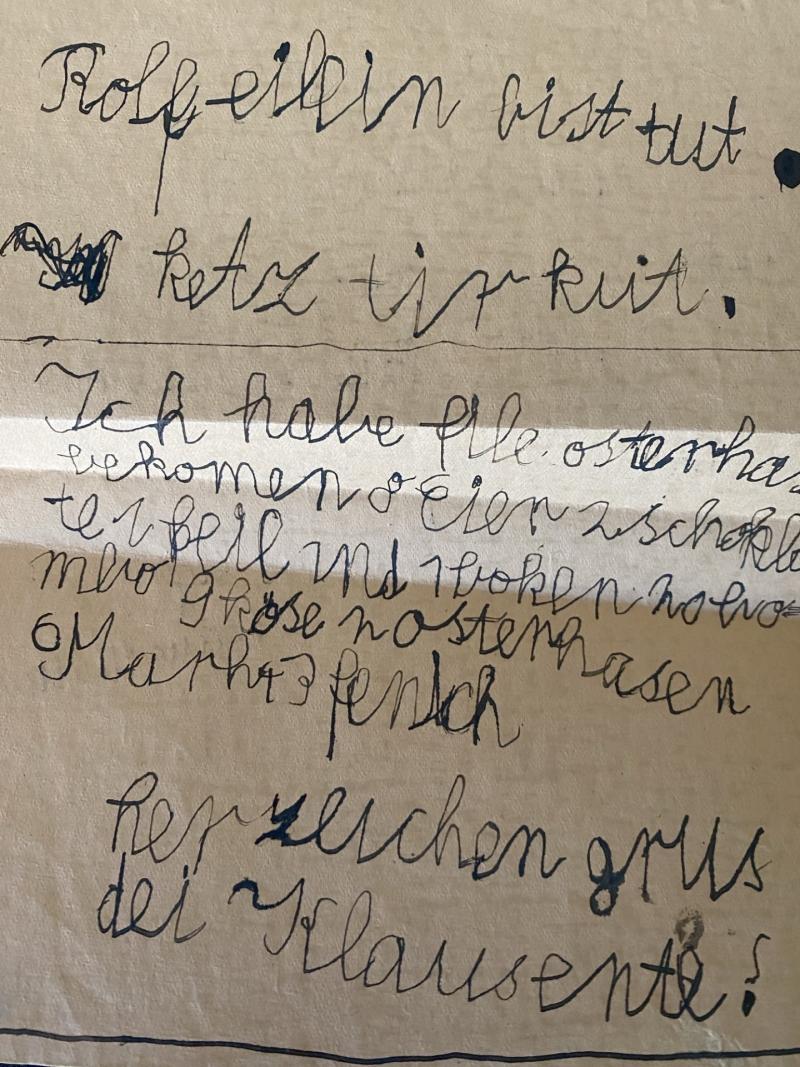 Rolfeilein bist tut.
ketz tir kut.
Ich habe file osterhas
bekomen 8 Eier 2 schokla
ter keil und 1 boken 2 
9 köse 2 osterhasen
6 Mark 43 fenich
herzeichen grus
dei Klausente!